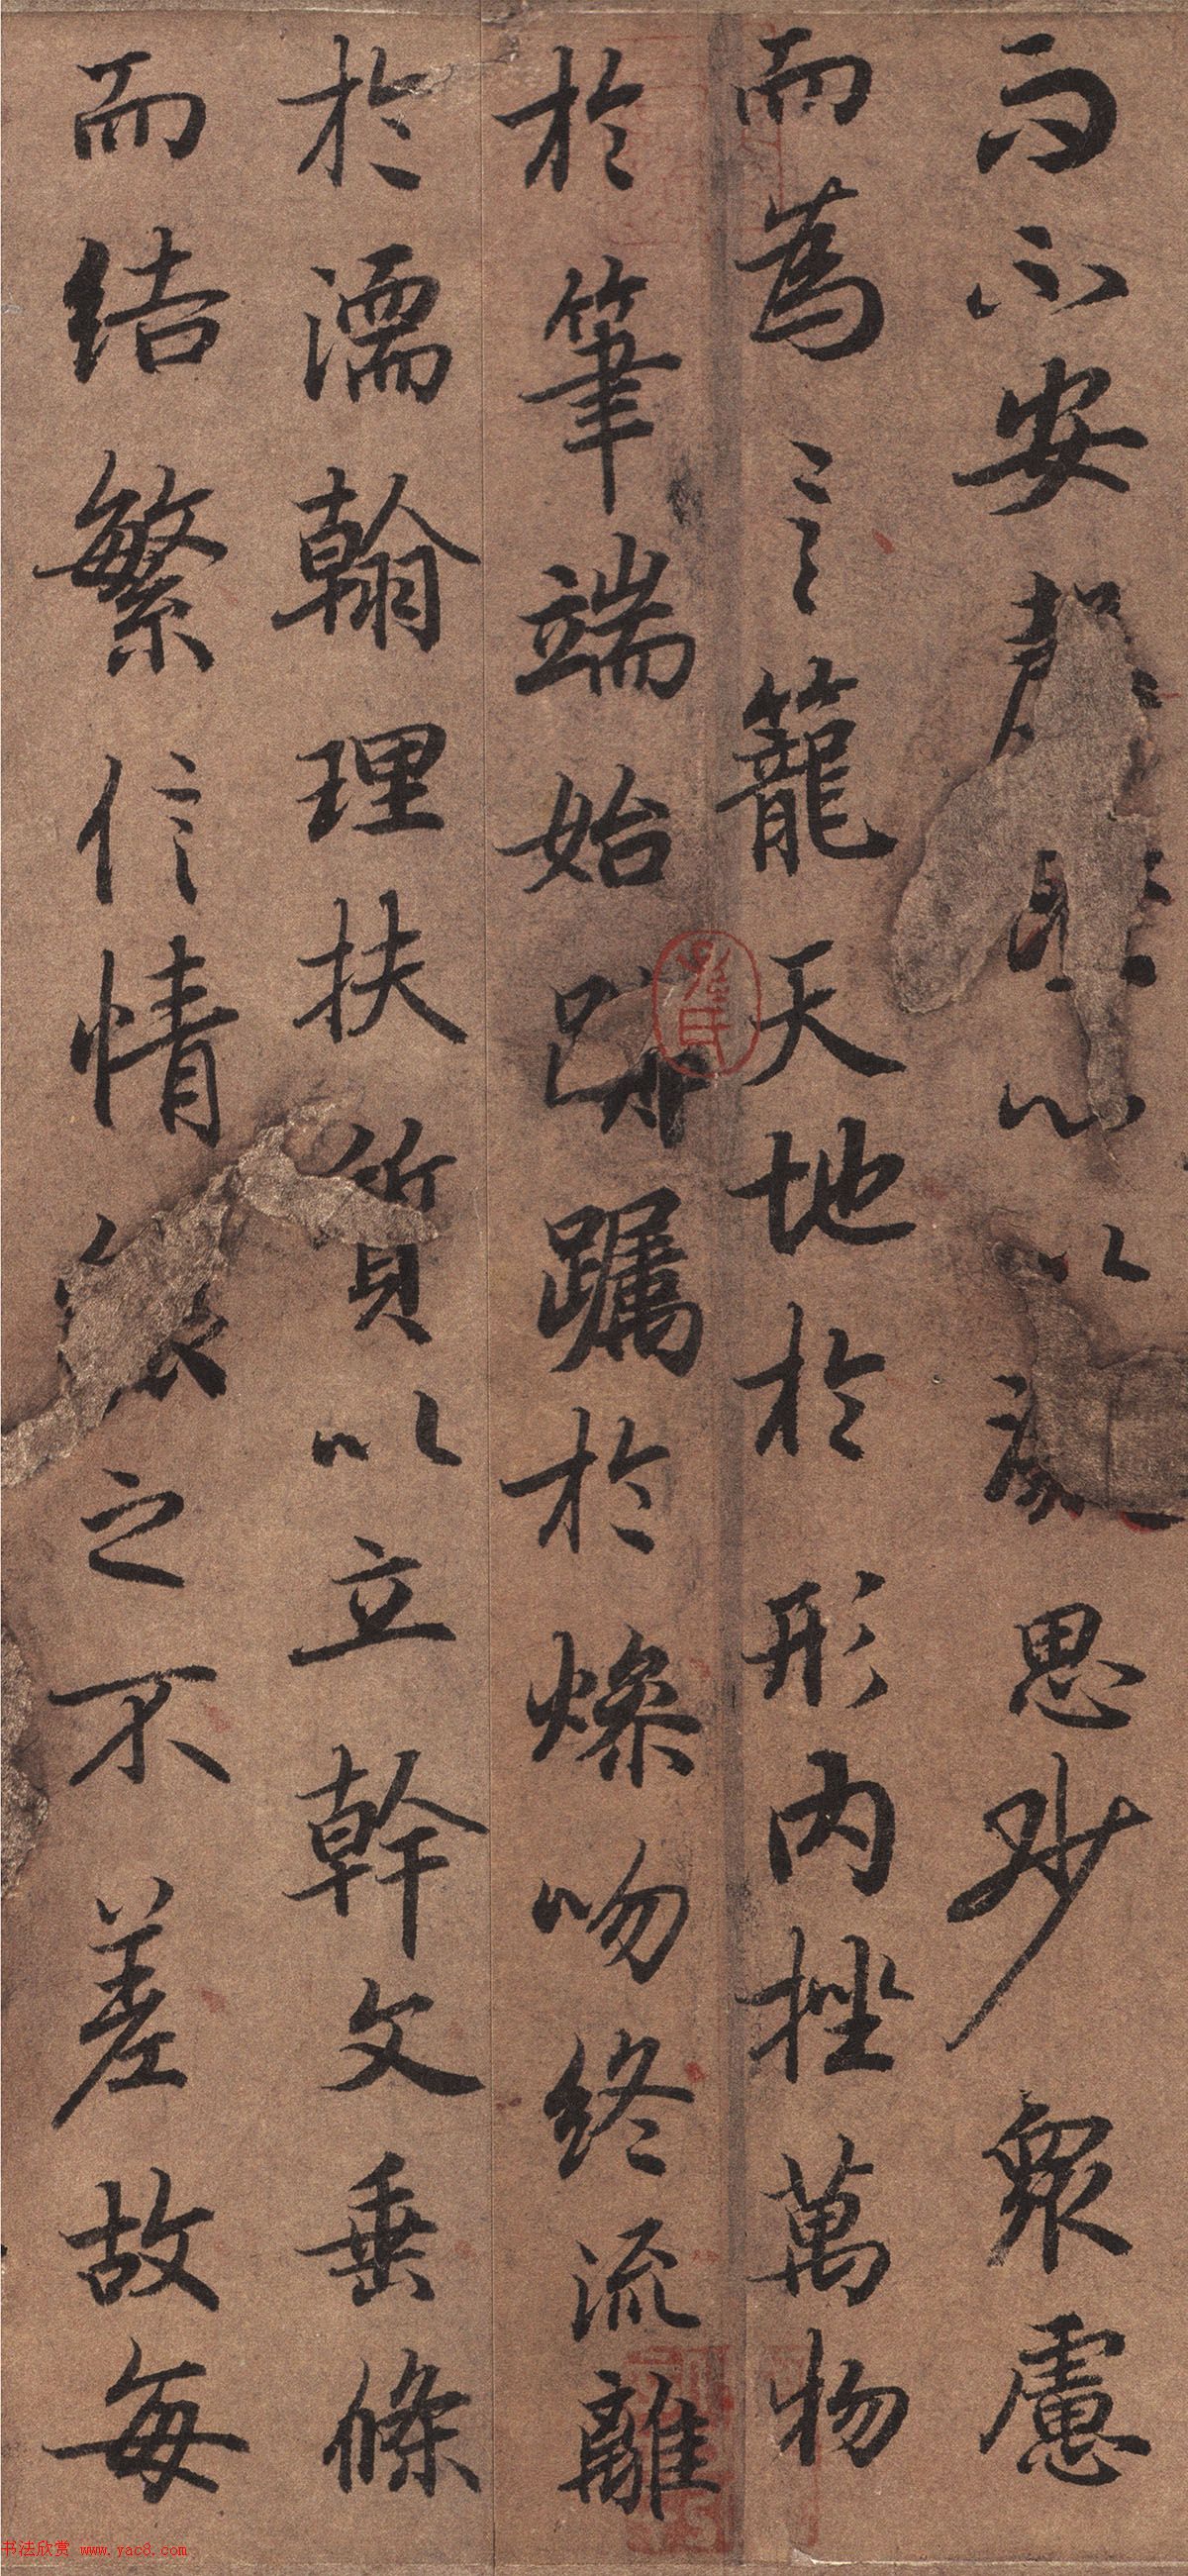 而不安心以思眇衆慮
而為言籠天地於形內挫萬物
於筆端始躅於燥吻終流離
於濡翰理扶質以立幹文垂條
而結繁信情之不差故每
书法欣赏 www.yac8.com